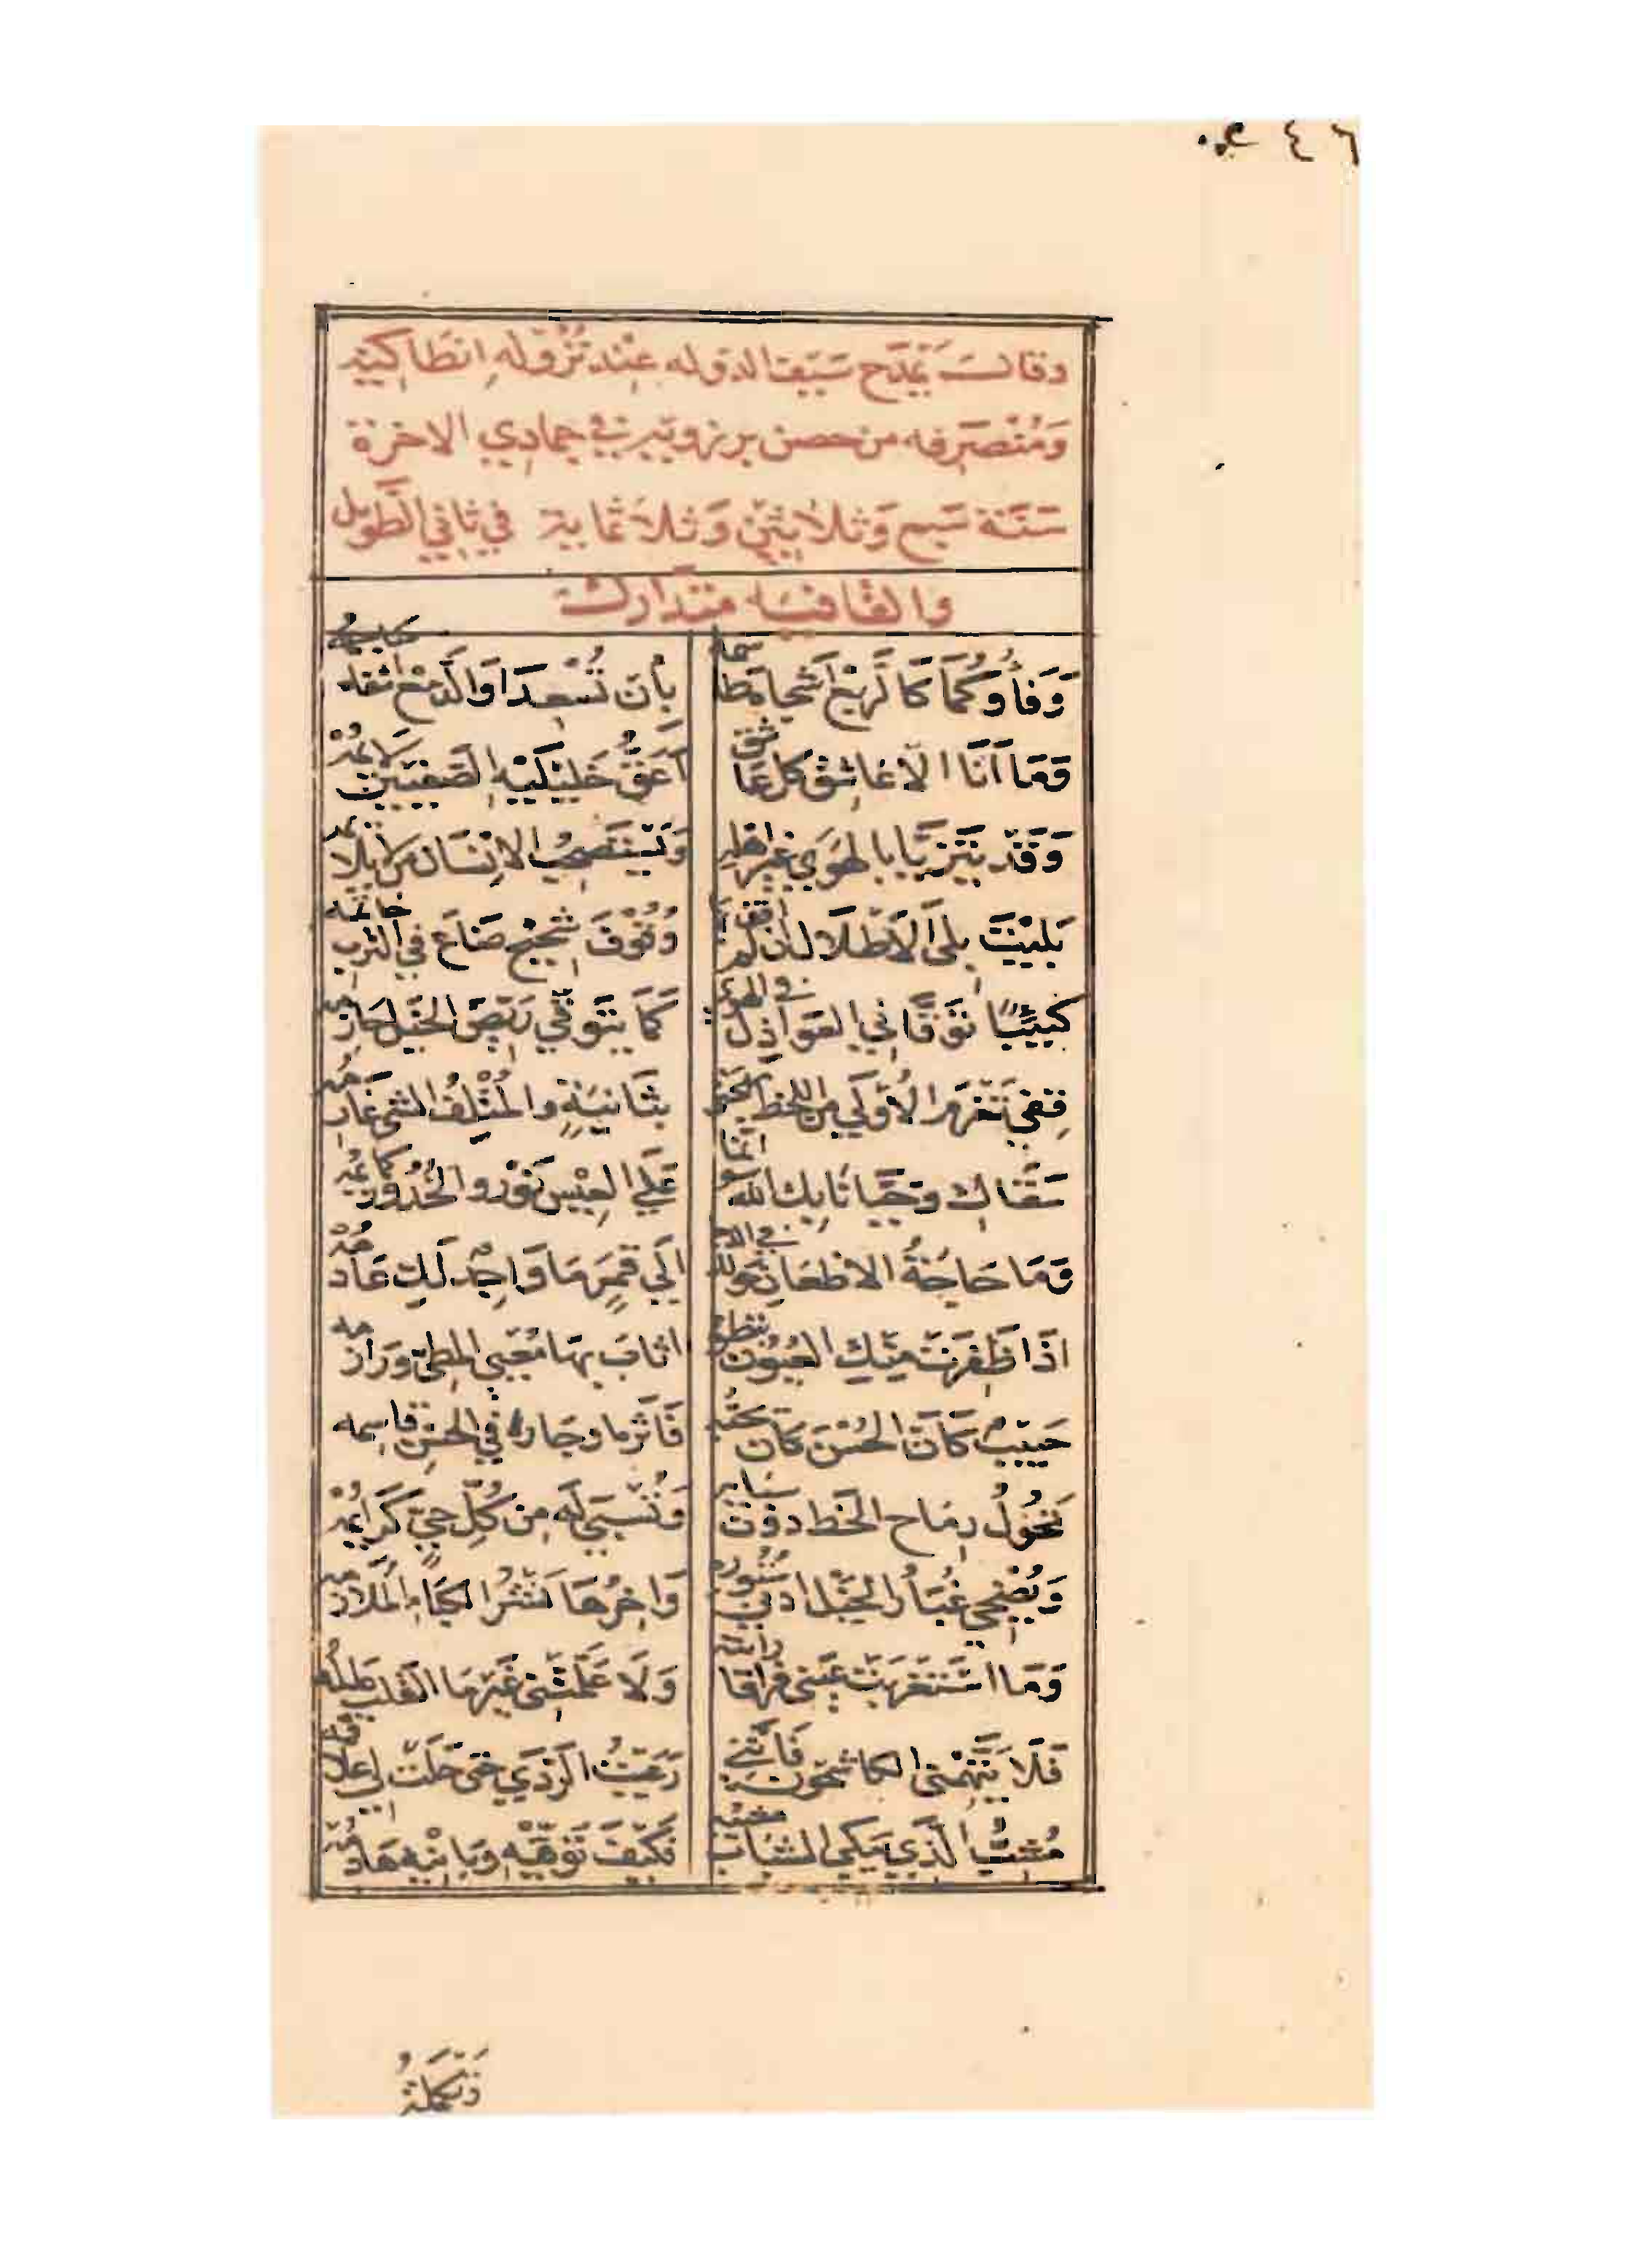 ٤٦
وقال يمدح سيف الدوله عند نزوله انطاكيه
ومنصرفه من حصن برزويه في جمادي الاخرة
سنة سبع وثلاثين وثلاثماية في ثاني الطويل
والقافيه متدارك
وَفَاؤُكُمَا كَالرَّبْعِ أشْجَاهُ طاسمه بِأن تُسْعِدَا وَالدَّمْعُ اشفاه ساجمه
وَمَا أنَا الا عَاشِقٌ كل عاشق أعَقُّ خَلِيلَيْهِ الصفيين لائمه
وَقَدْ يَتَزَيَّا بالهوي غير اهله وَيَسْتَصْحِبُ الانسان من لا يلائمه
بَلِيتُ بلي الاطلال ان لم اقف بها وُقُوفَ شحيح ضاع في الترب خاتمه
كَئِيبًا توقاني العواذل في الهوي كما يتوقي ريض الخيل حازمه
قفي تغرم الأولي من اللحظ مهجتي بثانية والمتلف الشي غارمه
سقاك وحيانا بك الله انما علي العيس نور والخدور كمائمه
وما حاجة الاظعان حولك في الدجا الي قمر ما واجد لك عادمه
اذا ظفرت منك العيون بنظرة اثاب بها معيي المطي ورازمه
حبيب كان الحسن كان يحبه فآثره او جار في الحسن قاسمه
تحول رماح الخط دون سبايه وتسبي له من كل حي كرائمه
ويضحي غبار الخيل ادني ستوره وآخرها نشر الكباء الملازمه
وما استغربت عيني فراقا رايته ولا علمتني غير ما القلب عالمه
فلا يتهمني الكاشحون فانني رعيت الردي حتي حلت لي علاقمه
مشب الذي يبكي الشباب مشيبه فكيف توقيه وبانيه هادمه
وتكملة